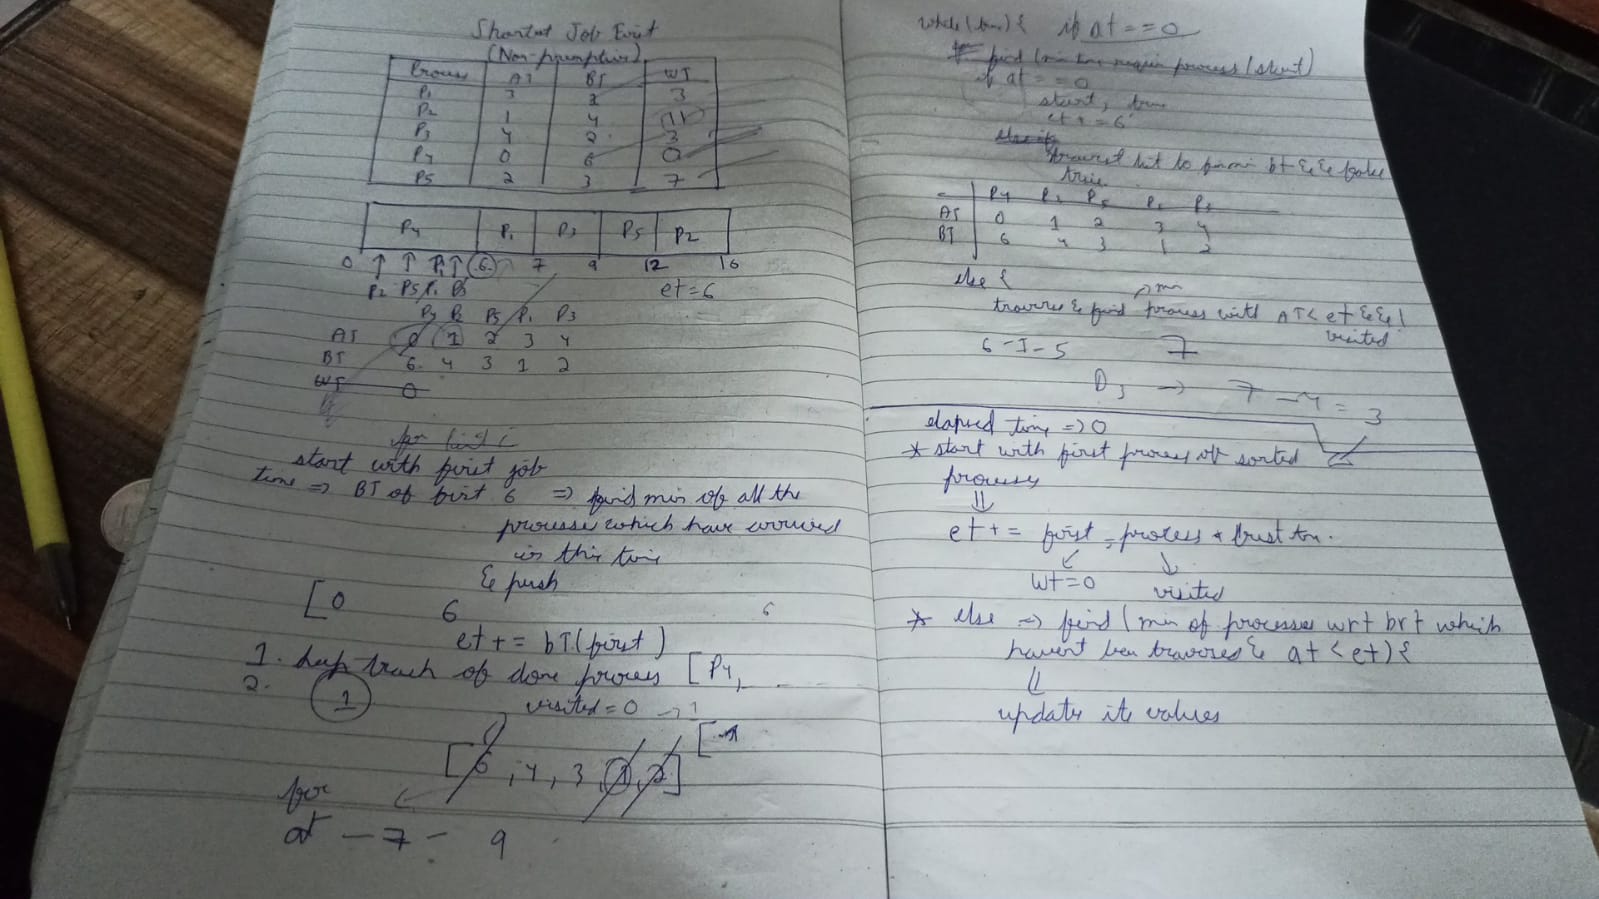 Shortest Job First
(Non-premptive)
Process AT BT WT
P1 3 1 3
P2 1 4 11
P3 4 2 3
P4 0 6 0
P5 2 3 7
P4 P1 P3 P5 P2
0 6 7 9 12 16
P2 P5 P1 P3 et=6
P2 P5 P1 P3
AT 0 1 2 3 4
BT 6 4 3 1 2
WT 0
for (int i
start with first job
time => BT of first 6 => find min of all the
processes which have arrived
in this time
& push
[0 6 6
et + = bT(first)
1. keep track of done process [P4,
2. 1 visited = 0 → 1
[6, 4, 3, 1, 2]
for
at - 7 - 9
while (true) { if at == 0
find (min time require process / start)
if at == 0
start, time
et + = 6
else if
traverst list to find min bt && false
true
P4 P2 P5 P1 P3
AT 0 1 2 3 4
BT 6 4 3 1 2
else {
min
traverse & find process with AT < et && !
visited
6 - 1 - 5 7
→ 7 - 4 = 3
elapsed time => 0
* start with first process of sorted
process
et + = first process burst tm.
wt = 0 visited
* else => find (min of processes wrt brt which
havent been traversed & at < et) {
update its values